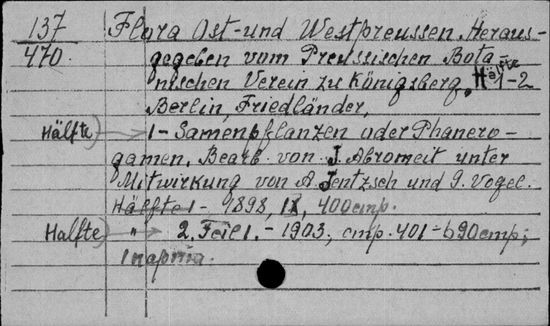 137 Flora Ost- und Westpreussen. Heraus-
470. gegeben vom Preussischen Bota-
nischen Verein zu Königsberg. Hälfte 1-2
Berlin, Friedländer,
Hälfte) 1- Samenpflanzen oder Phanero-
gamen. Bearb. von J. Abromeit unter
Mitwirkung von A. Jentzsch und G. Vogel.
Hälfte 1 - 1898, IX, 400 cmp.
Halfte) " 2. Teil 1. - 1903, cmp. 401-690 cmp;
1 карта.